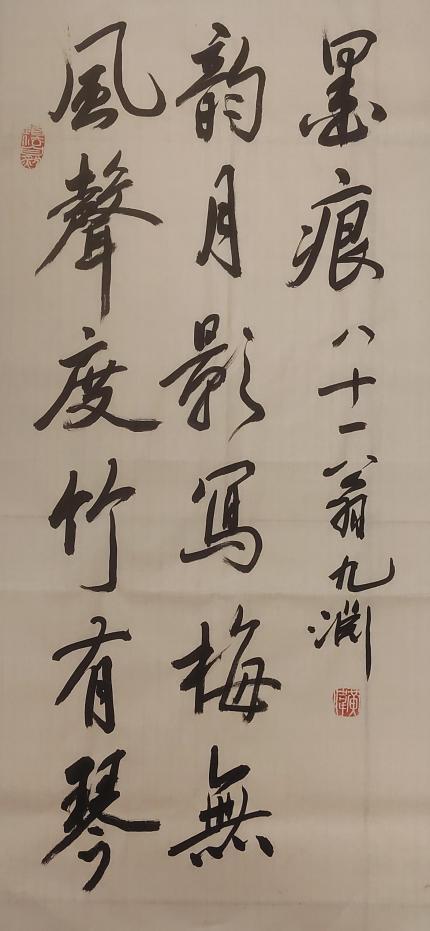 風聲度竹有琴
韵月影寫梅無
墨痕 八十一翁九淵